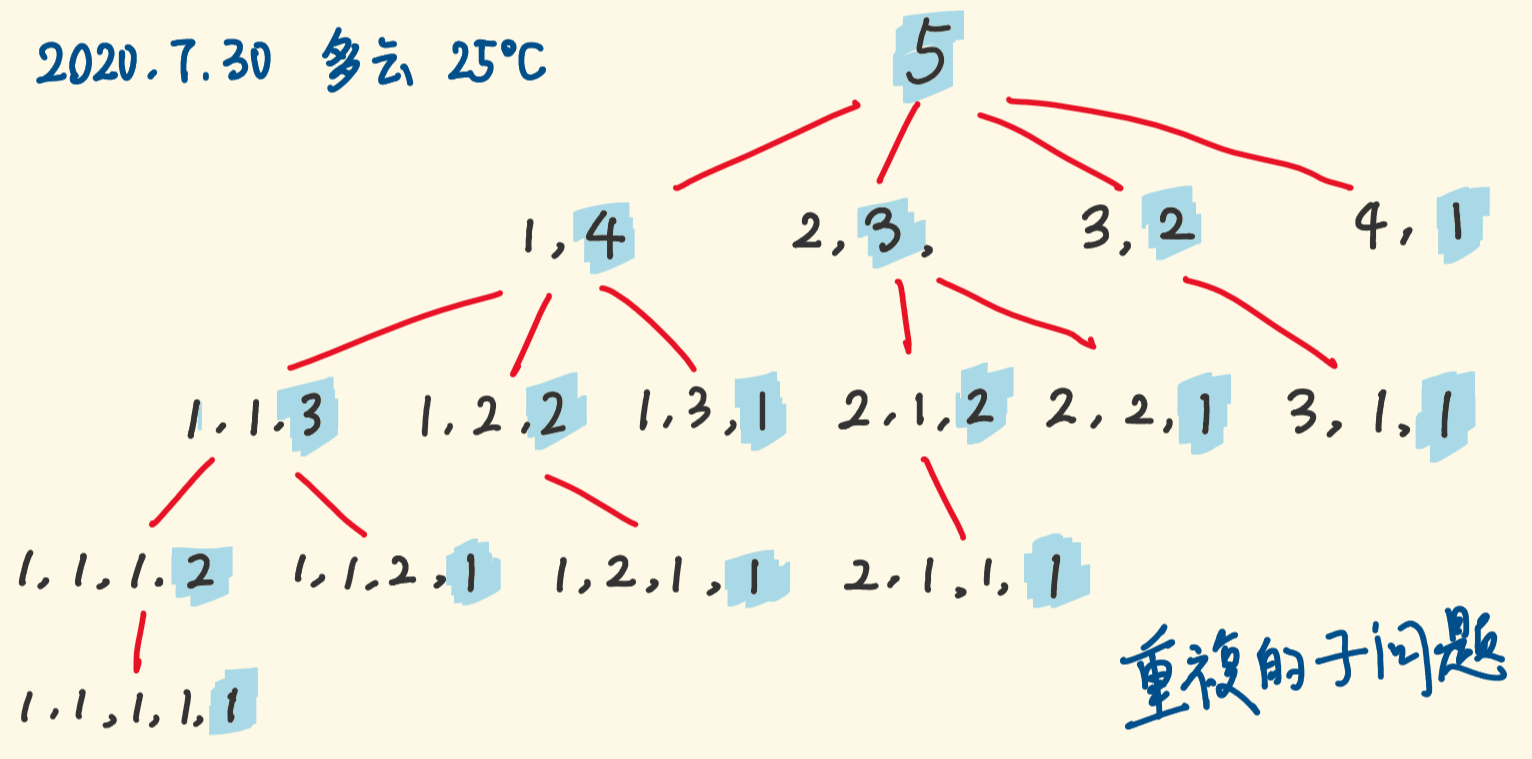 2020.7.30 多云 25°C
5
1,4 2,3, 3,2 4,1
1,1,3 1,2,2 1,3,1 2,1,2 2,2,1 3,1,1
1,1,1,2 1,1,2,1 1,2,1,1 2,1,1,1
1,1,1,1,1
重複的子问题